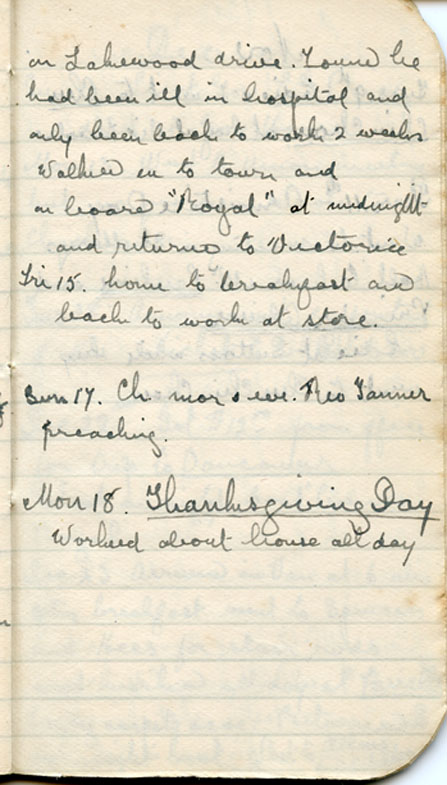 on Lakewood drive. Found he
had been ill in hospital and
only been back to work 2 weeks
Walked in to town and
on board "Royal" at midnight
and returned to Victoria
Fri 15. home to breakfast and
back to work at store.
Sun 17. Ch mor & eve. Rev Tanner
preaching.
Mon 18. Thanksgiving Day
Worked about house all day